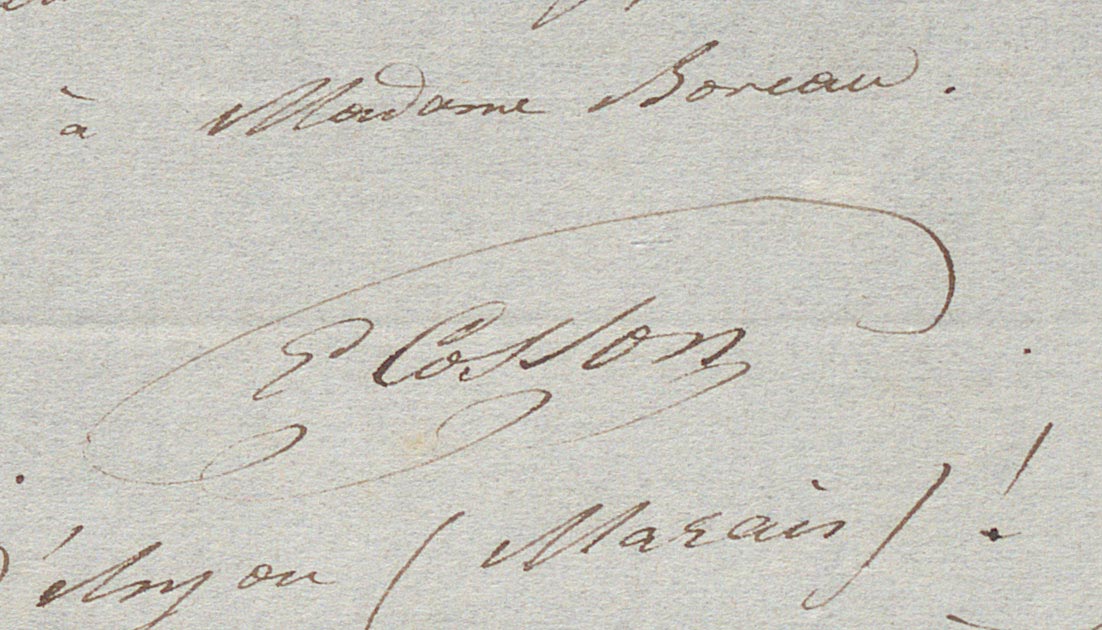 à Madame Boreau.
E Cosson
d'Anjou (Marais)!